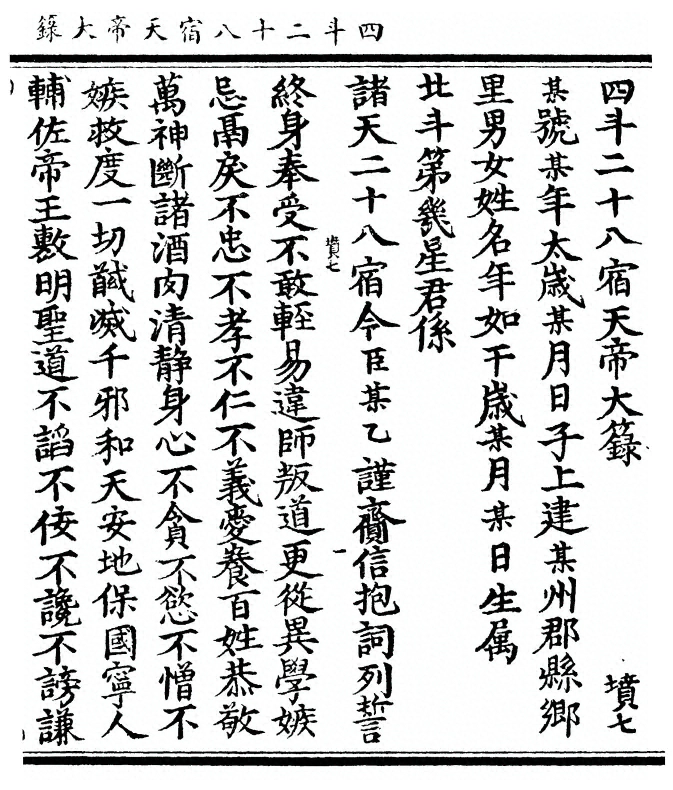 四斗二十八宿天帝大籙
四斗二十八宿天帝大籙 墳七
某號某年太歲某月日子上建某州郡縣鄉
里男女姓名年如干歲某月某日生屬
北斗第幾星君係
諸天二十八宿今臣某乙謹齎信抱詞列誓
墳七
終身奉受不敢輊易違師叛道更從異學嫉
忌鬲戾不忠不孝不仁不義愛養百姓恭敬
萬神斷諸酒肉清静身心不貪不慾不憎不
嫉救度一切馘滅千邪和天安地保國寧人
輔佐帝王敷明聖道不謟不佞不讒不謗謙